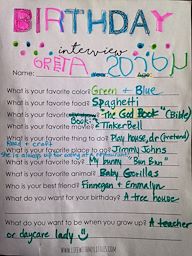 BIRTHDAY
interview
GRETA
Name:
What is your favorite color? Green + Blue
What is your favorite food? Spaghetti
"The God Book" (Bible)
What is your favorite movie? TinkerBell
What is your favorite thing to do? Play house, air (pretend)
Read + craft
What is your favorite place to go? Jimmy Johns
She is always up for eating at a restaurant
What is your favorite toy? My Bunny "Bun Bun"
What is your favorite animal? Baby Gorillas
Who is your best friend? Finnegan + Emmalyn
What do you want for your birthday? A tree house
What do you want to be when you grow up? A teacher
or daycare lady